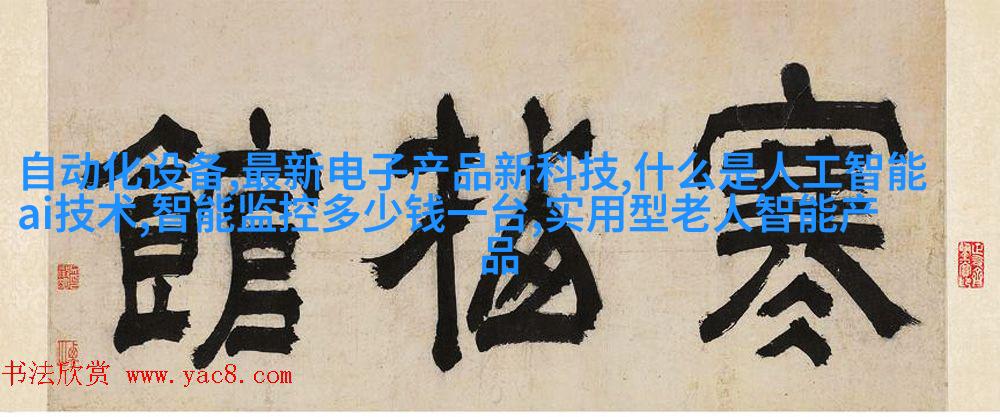 寒梅館
自动化设备,最新电子产品新科技,什么是人工智能
ai技术,智能监控多少钱一台,实用型老人智能产
品
书法欣赏 www.yac8.com